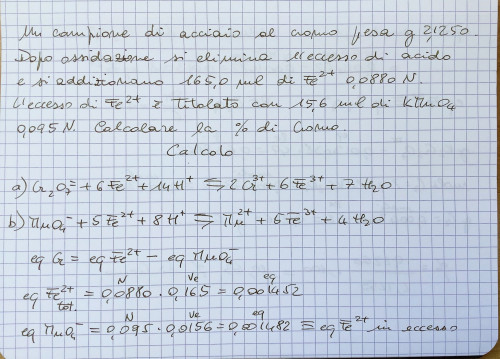 Un campione di acciaio al cromo pesa g 2,1250.
Dopo ossidazione si elimina l'eccesso di acido
e si addizionano 165,0 ml di Fe²⁺ 0,0880 N.
L'eccesso di Fe²⁺ è titolato con 15,6 ml di KMnO₄
0,095 N. Calcolare la % di Cromo.
Calcolo
a) Cr₂O₇⁼ + 6 Fe²⁺ + 14 H⁺ ⇋ 2 Cr³⁺ + 6 Fe³⁺ + 7 H₂O
b) MnO₄⁻ + 5 Fe²⁺ + 8 H⁺ ⇋ Mn²⁺ + 6 Fe³⁺ + 4 H₂O
eq Cr = eq Fe²⁺ − eq MnO₄⁻
N Ve eq
eq Fe²⁺ tot. = 0,0880 · 0,165 = 0,001452
N Ve eq
eq MnO₄⁻ = 0,095 · 0,0156 = 0,001482 ≡ eq Fe²⁺ in eccesso